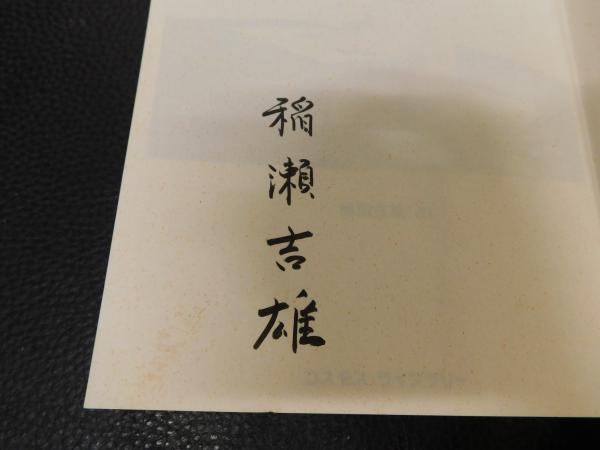 稲瀬吉雄